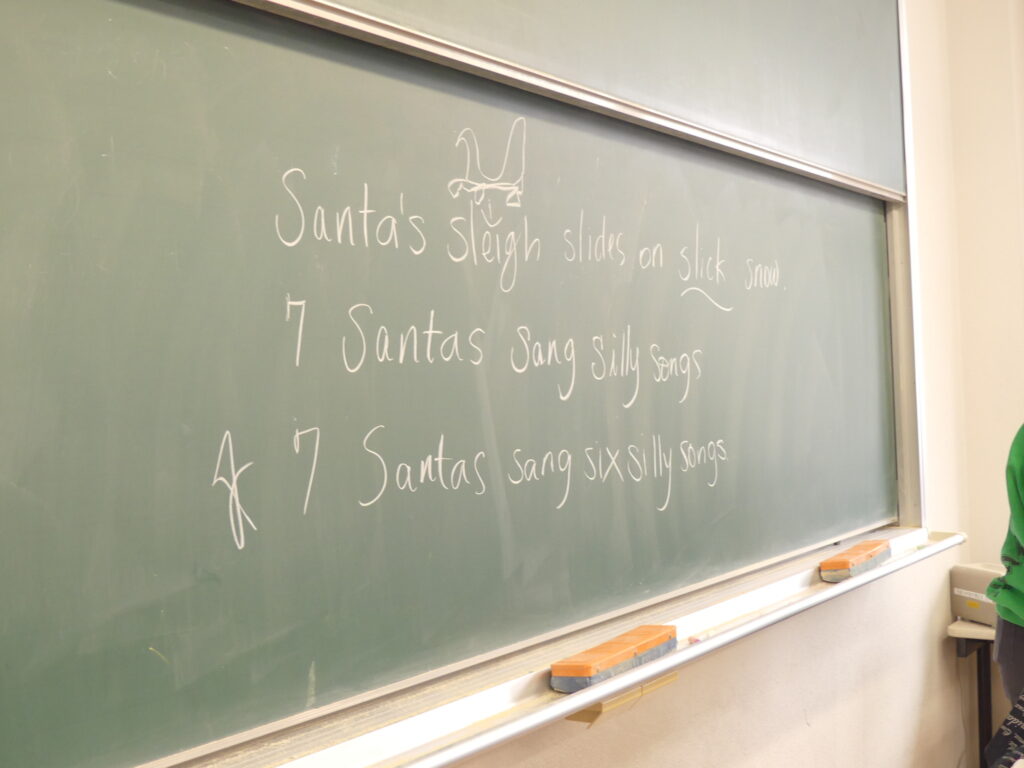 Santa's sleigh slides on slick snow.
7 Santas sang silly songs
7 Santas sang six silly songs